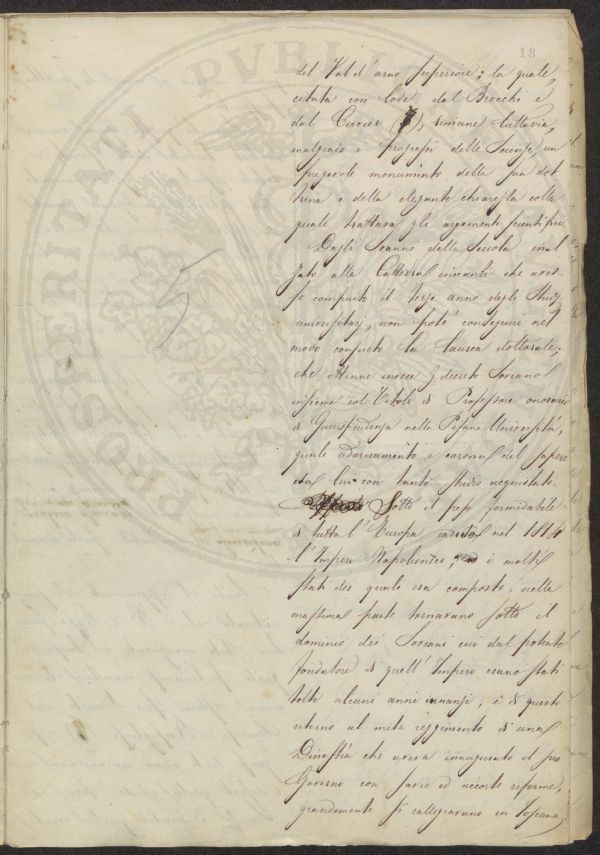 18
del Val d'arno Superiore; la quale
citata con lode dal Brocchi e
dal Cuvier (3), rimane tuttavia,
malgrado i progressi delle Scienze, un
pregevole monumento della sua dot
trina e della elegante chiarezza colla
quale trattava gli argomenti scientifici.
Dagli Scanni della Scuola inal
zato alla Cattedra innanzi che aves
se compiuto il terzo anno degli Studj
universitarj, non potè conseguire nel
modo consueto la laurea dottorale;
che ottenne invece decreto Sovrano
insieme col Titolo di Professore onorario
di Giurisprudenza nella Pisana Università,
quale adornamento e corona del sapere
da lui con tanto studio acquistato.
Sotto il peso formidabile
di tutta l'Europa caduto nel 1814
l'Impero Napoleonico, i molti
stati dei quale era composto, nella
massima parte tornarono sotto il
dominio dei Sovrani cui dal potente
fondatore di quell'Impero erano stati
tolti alcuni anni innanzi; e di questo
ritorno al mite reggimento di una
Dinastia che aveva inaugurato il suo
Governo con savie ed accorte riforme,
grandemente si rallegravano in Toscana
5
PVBLIC